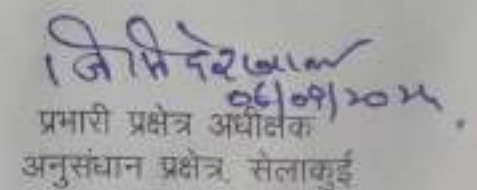 06/09/2024
प्रभारी प्रक्षेत्र अधीक्षक
अनुसंधान प्रक्षेत्र, सेलाकुई